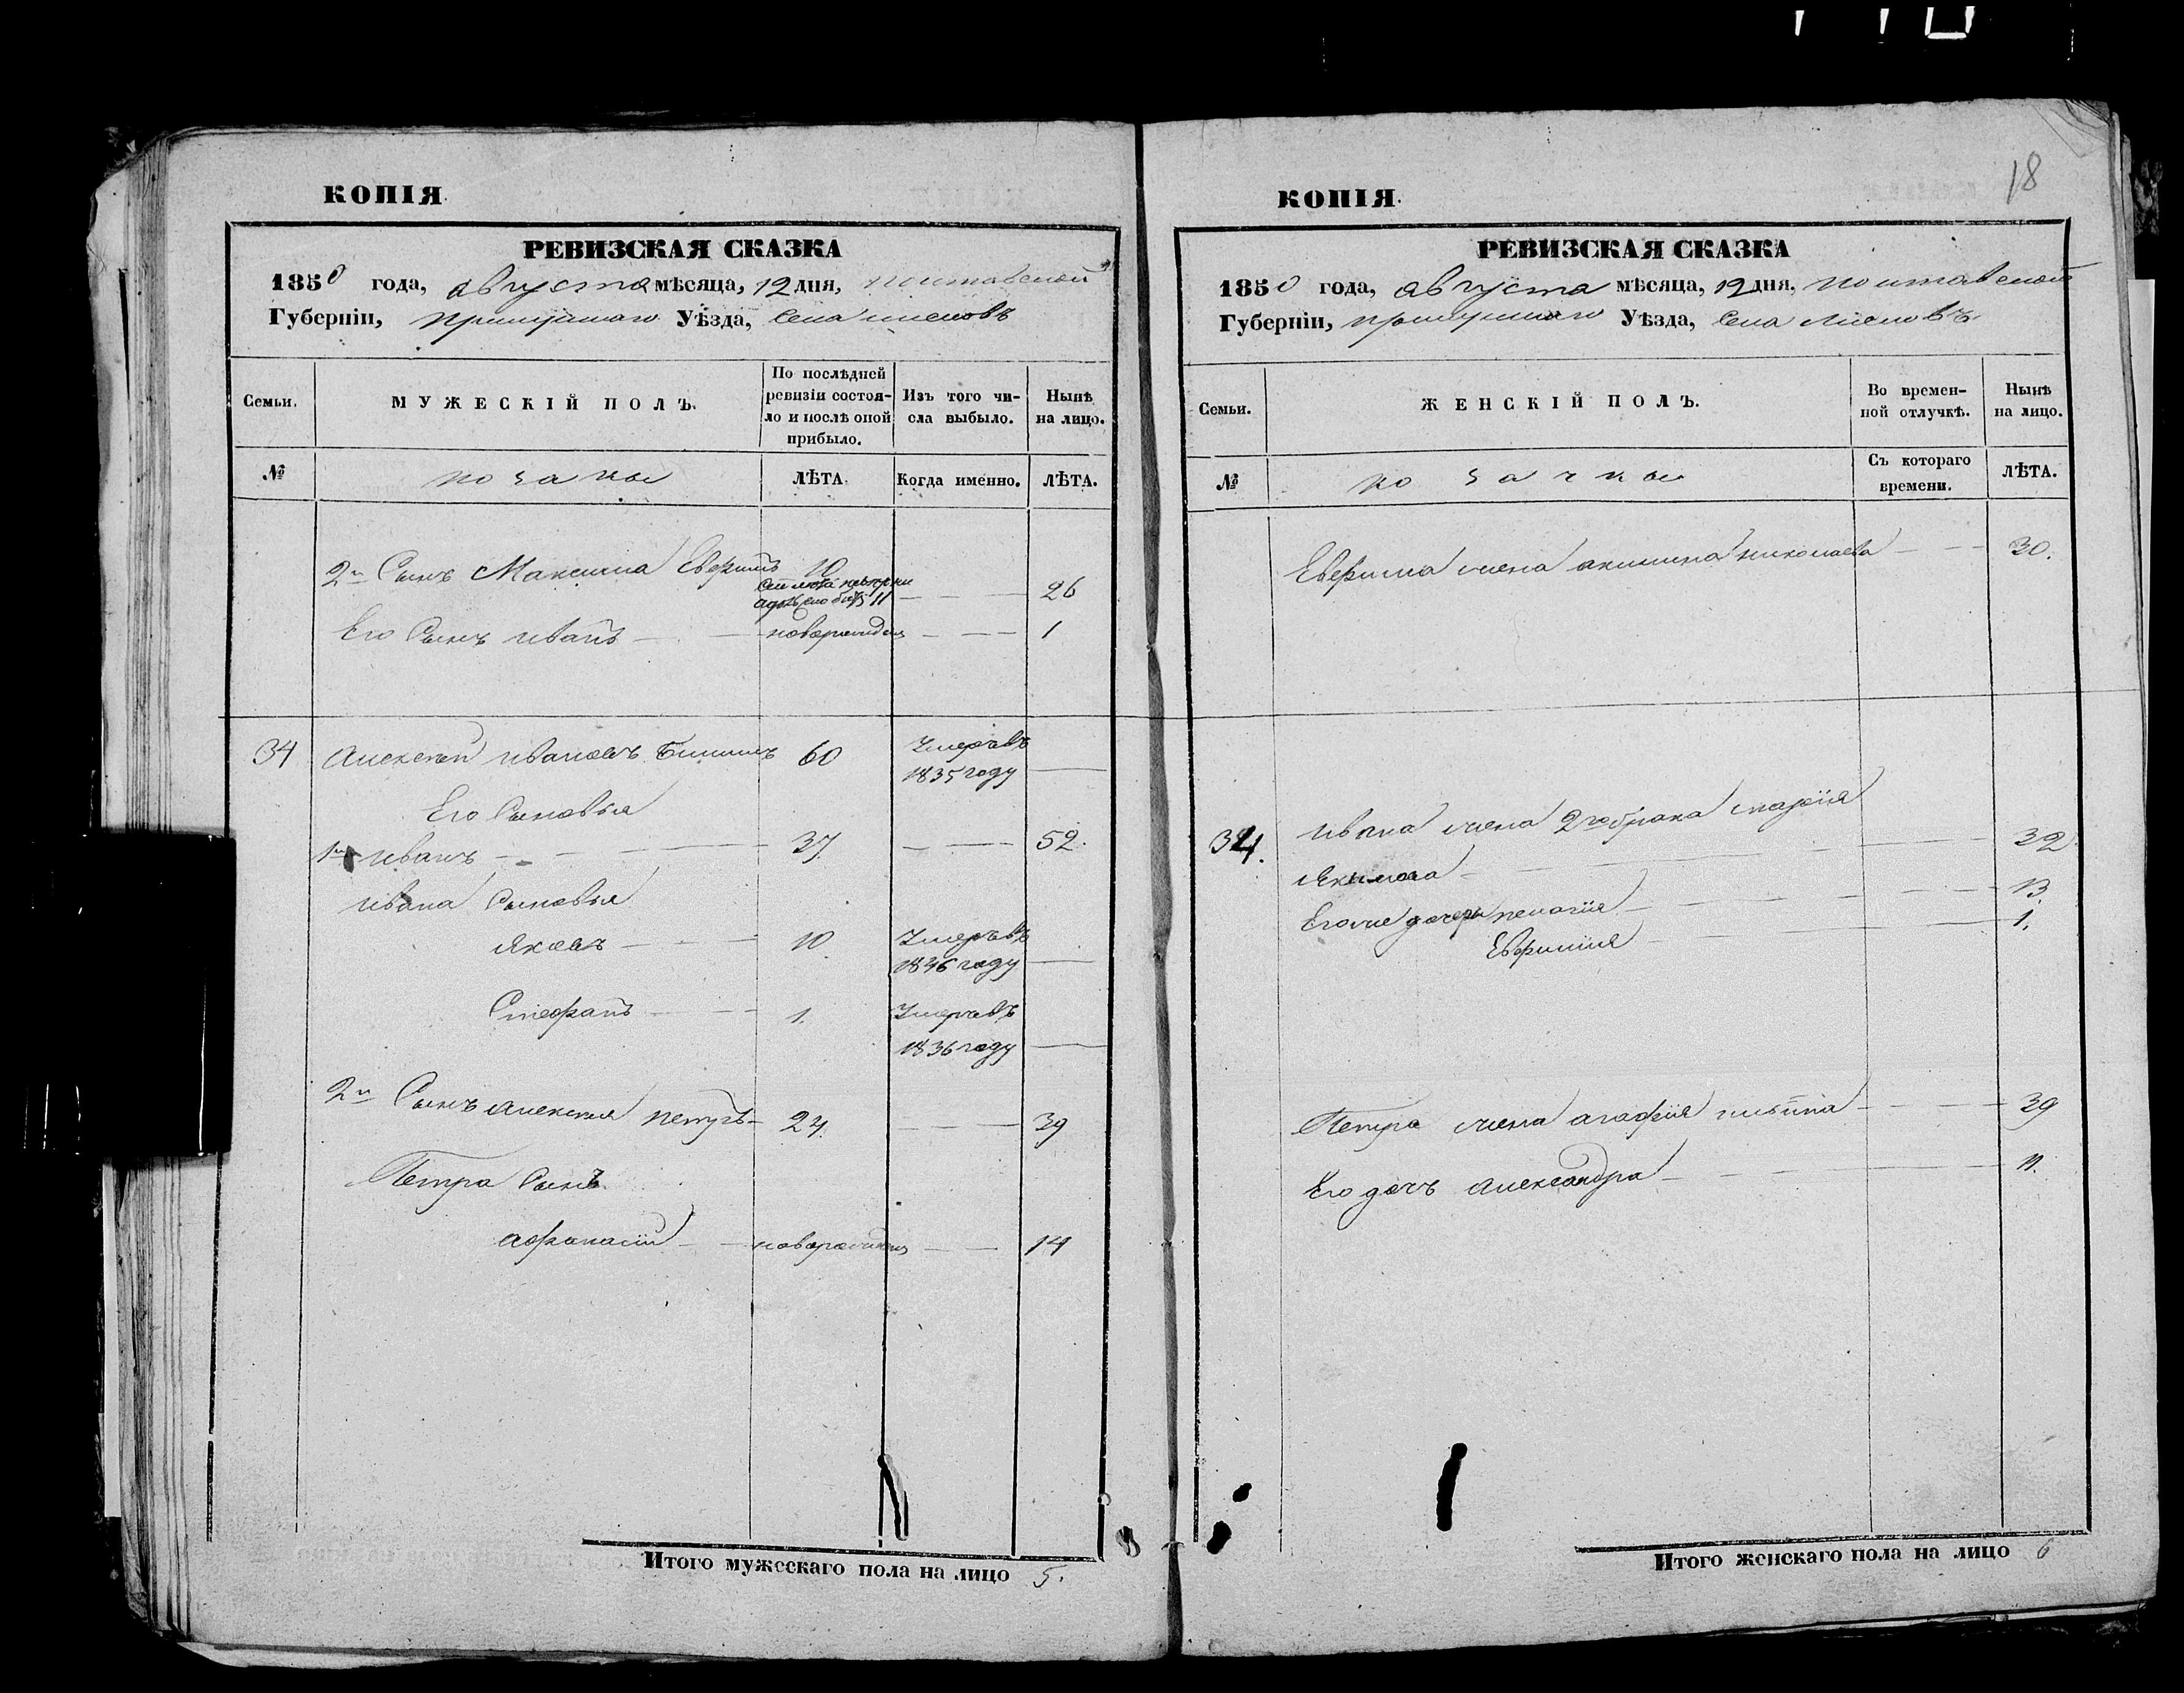 КОПІЯ.
РЕВИЗСКАЯ СКАЗКА
1850 года, августа мѣсяца, 12 дня, полтавской
Губерніи, прилуцкаго Уѣзда, села
Семьи.
МУЖЕСКІЙ ПОЛЪ.
По послѣдней ревизіи состоя-
ло и послѣ оной прибыло.
Изъ того чи-
сла выбыло.
Нынѣ
на лицо.
№
козаки
ЛѢТА.
Когда именно.
ЛѢТА.
2й Сынъ Максима Евфимъ 10 26
11
Его Сынъ иванъ — новорожденъ — 1
34 Алексѣй ивановъ 60 Умеръ въ
1835 году —
Его Сыновья
1й иванъ — 37. — 52.
ивана Сыновья
Яковъ — 10 Умеръ въ
1846 году —
Стефанъ — 1. Умеръ въ
1836 году —
2й Сынъ алексѣя петръ — 24. — 39
Петра Сынъ
афанасій — новорожденъ — 14
Итого мужескаго пола на лицо 5.
18
КОПІЯ.
РЕВИЗСКАЯ СКАЗКА
1850 года, августа мѣсяца, 12 дня, полтавской
Губерніи, прилуцкаго Уѣзда, села
Семьи.
ЖЕНСКІЙ ПОЛЪ.
Во времен-
ной отлучкѣ.
Нынѣ
на лицо.
№
козачки
Съ котораго
времени.
ЛѢТА.
Евфима жена акилина николаева — 30.
34. ивана жена 2го брака марія
Якимова — 32
Его же дочери пелагія — 13.
Евфимія — 1.
Петра жена агафія ильина — 39
Его дочь александра — 11.
Итого женскаго пола на лицо 6